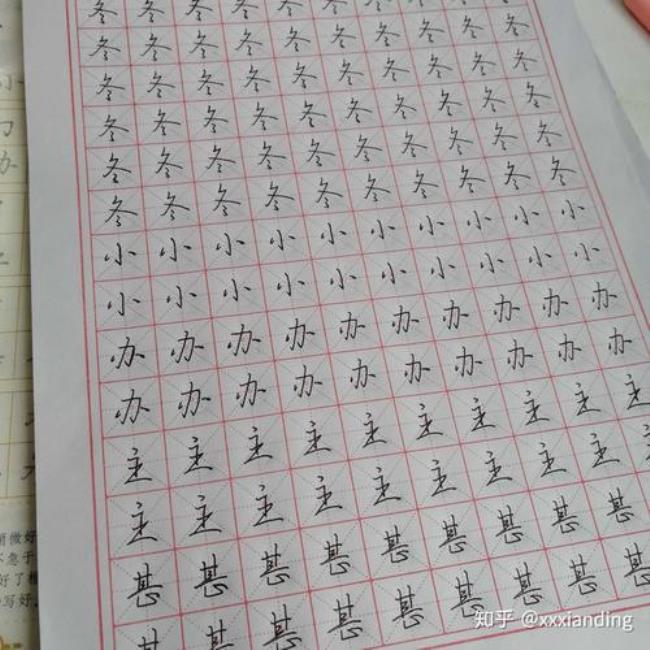 冬冬冬冬冬冬冬冬冬冬
冬冬冬冬冬冬冬冬冬冬
冬冬冬冬冬冬冬冬冬冬
冬冬冬冬冬冬冬冬冬冬
冬冬冬冬冬冬冬冬冬冬
冬冬冬冬冬冬冬冬冬冬
小小小小小小小小小小
小小小小小小小小小小
办办办办办办办办办办
办办办办办办办办办办
主主主主主主主主主主
主主主主主主主主主主
甚甚甚甚甚甚甚甚甚
甚甚甚甚甚甚甚甚甚
办
微好
不急于
好了
写好
知乎 @xxxianding